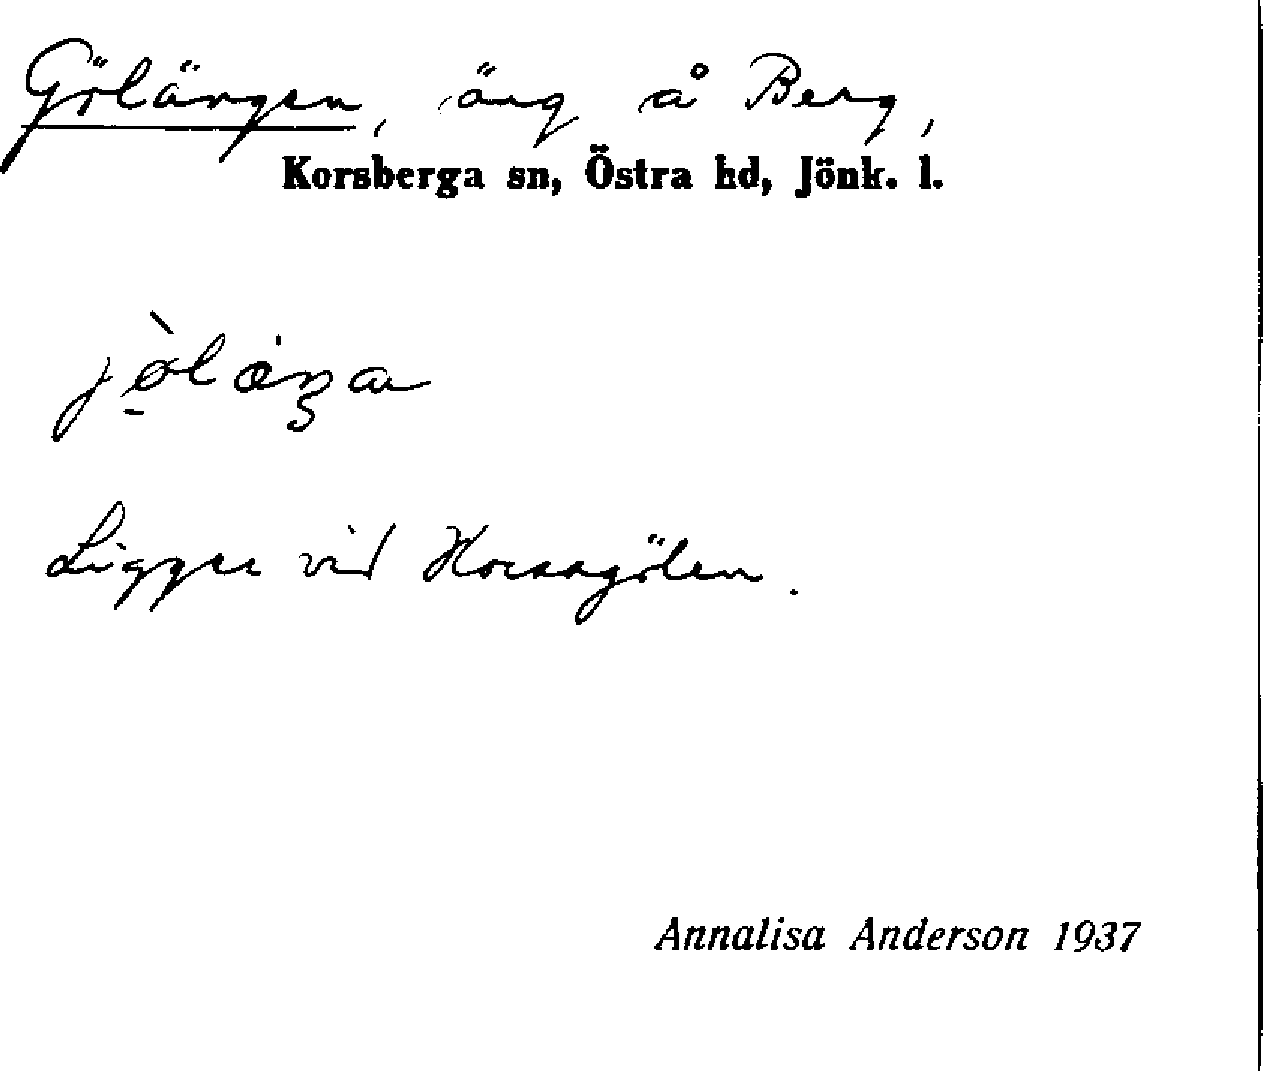 Gölängen, äng å Berg,
Korsberga sn, Östra hd, Jönk. l.
Ligger vid
Annalisa Anderson 1937